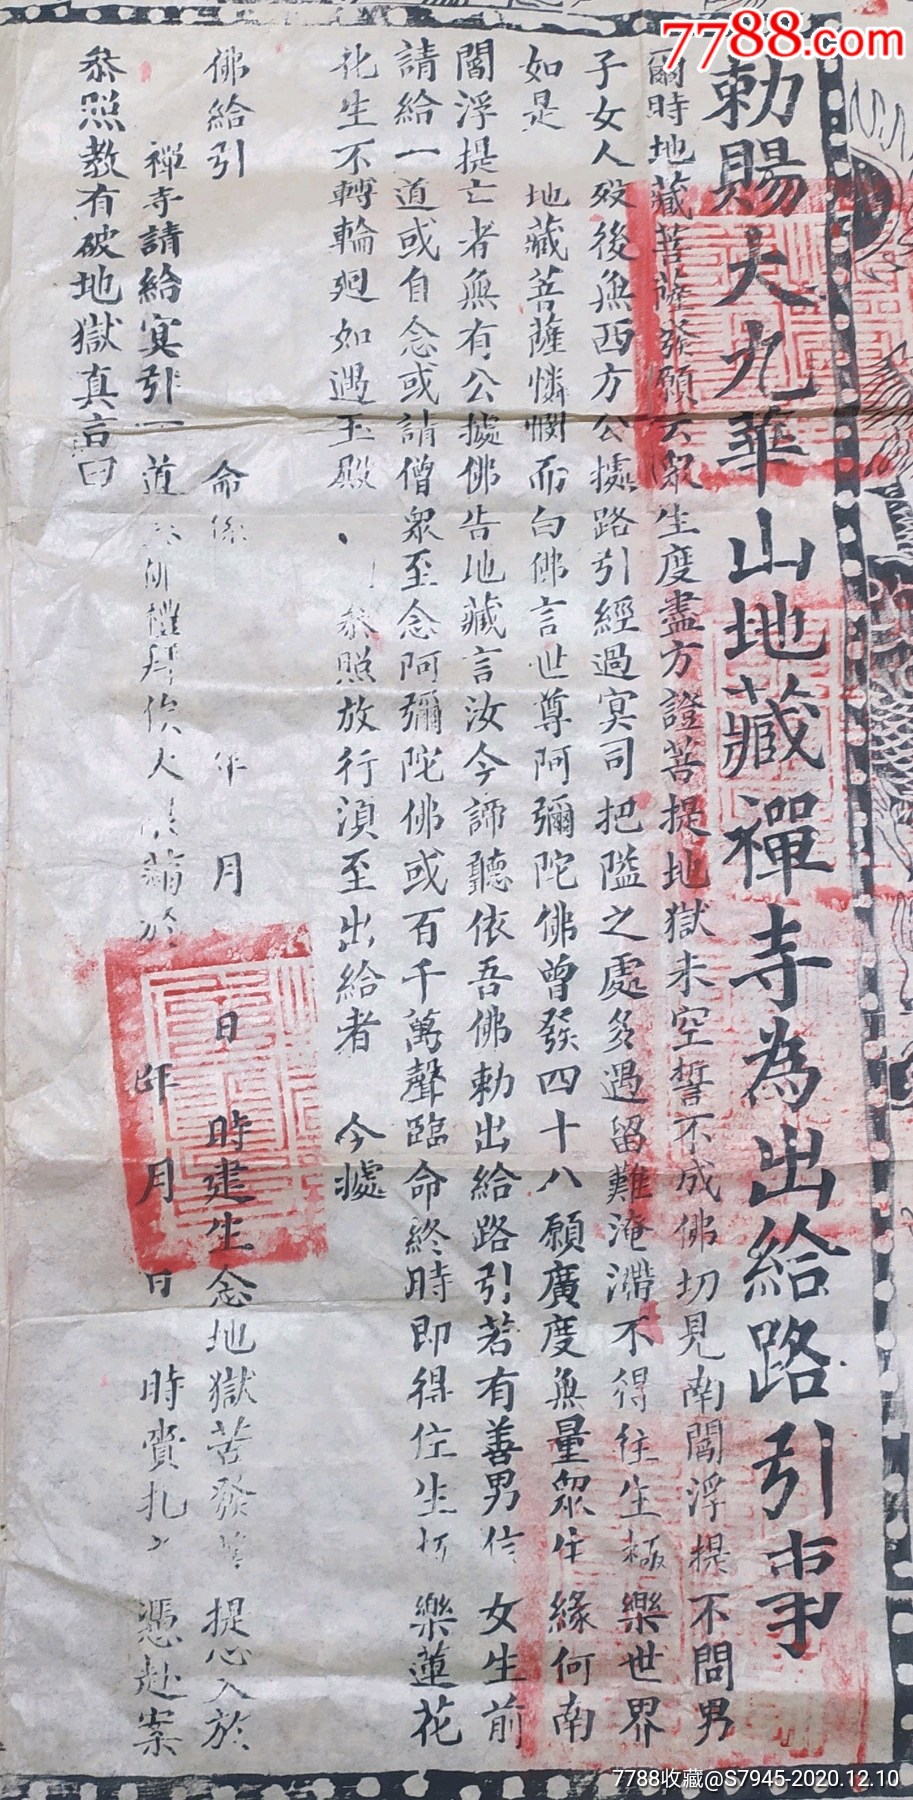 7788.com
勅賜大九華山地藏禪寺為出給路引事
爾時地藏菩薩發願云眾生度盡方證菩提地獄未空誓不成佛切見南閻浮提不問男
子女人歿後無西方公據路引經過冥司把隘之處多遇留難淹滯不得往生極樂世界
如是 地藏菩薩憐憫而白佛言世尊阿彌陀佛曾發四十八願廣度無量眾生緣何南
閻浮提亡者無有公據佛告地藏言汝今諦聽依吾佛勅出給路引若有善男信女生前
請給一道或自念或請僧眾至念阿彌陀佛或百千萬聲臨命終時即得往生極樂蓮花
化生不轉輪廻如遇玉殿 叅照放行湏至出給者 今據
佛給引 命係 年 月 日 時建生 念地獄苦發 提心入於
禪寺請給冥引一道 佛 拜 於 年 月 日 時賫 憑赴案
叅照教有破地獄真言曰
7788收藏@S7945-2020.12.10